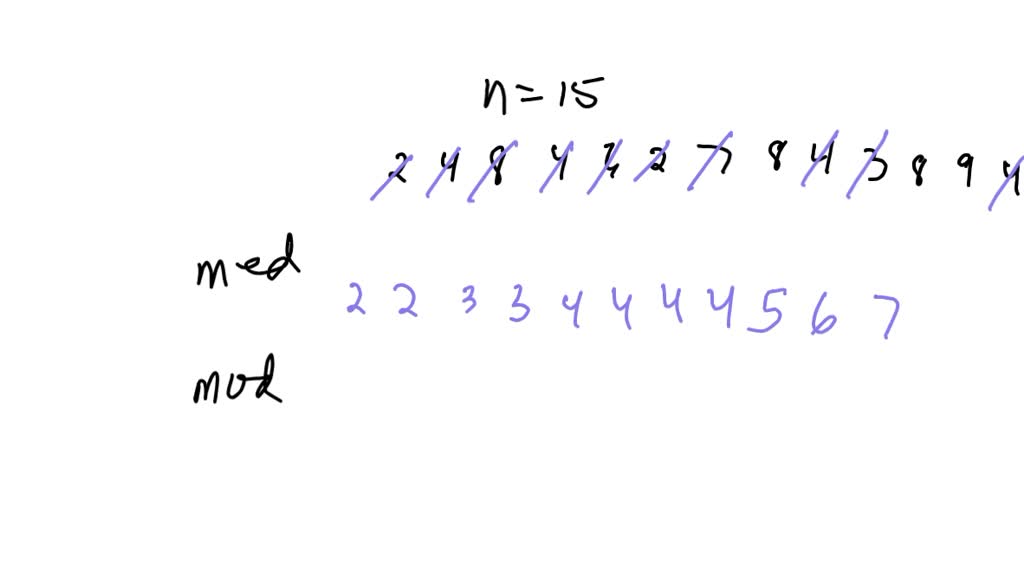 n = 15
2 4 8 4 2 7 8 4 3 8 9 4
med
2 2 3 3 4 4 4 4 5 6 7
mod